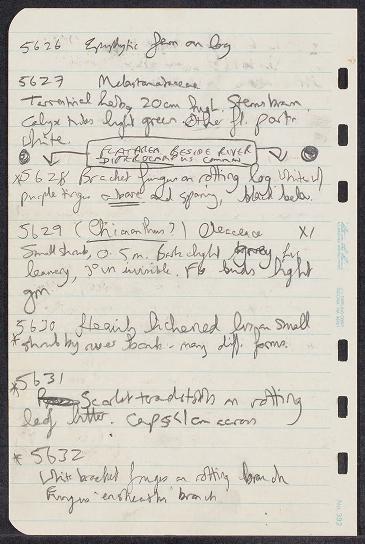 5626 Epiphytic fern on log
5627 Melastomataceae
Terrestrial herb, 20cm high. Stems brown.
Calyx tubes light green. Other fl. parts
white.
FLAT AREA BESIDE RIVER
DIPTEROCARPUS COMMON
*5628 Bracket fungus on rotting log. White w/
purple tinge above and sparing, black below.
5629 (Chionanthus?) Oleaceae X1
Small shrub, 0.5m. Bark light
leaves, 3° vn invisible. Fls buds light
grn.
5630 Heavily lichened small
*shrub by river bank - many diff. forms.
*5631
Scarlet toadstools on rotting
leaf litter. Caps <1cm across
*5632
White bracket fungus on rotting branch
Fungus ensheaths branch